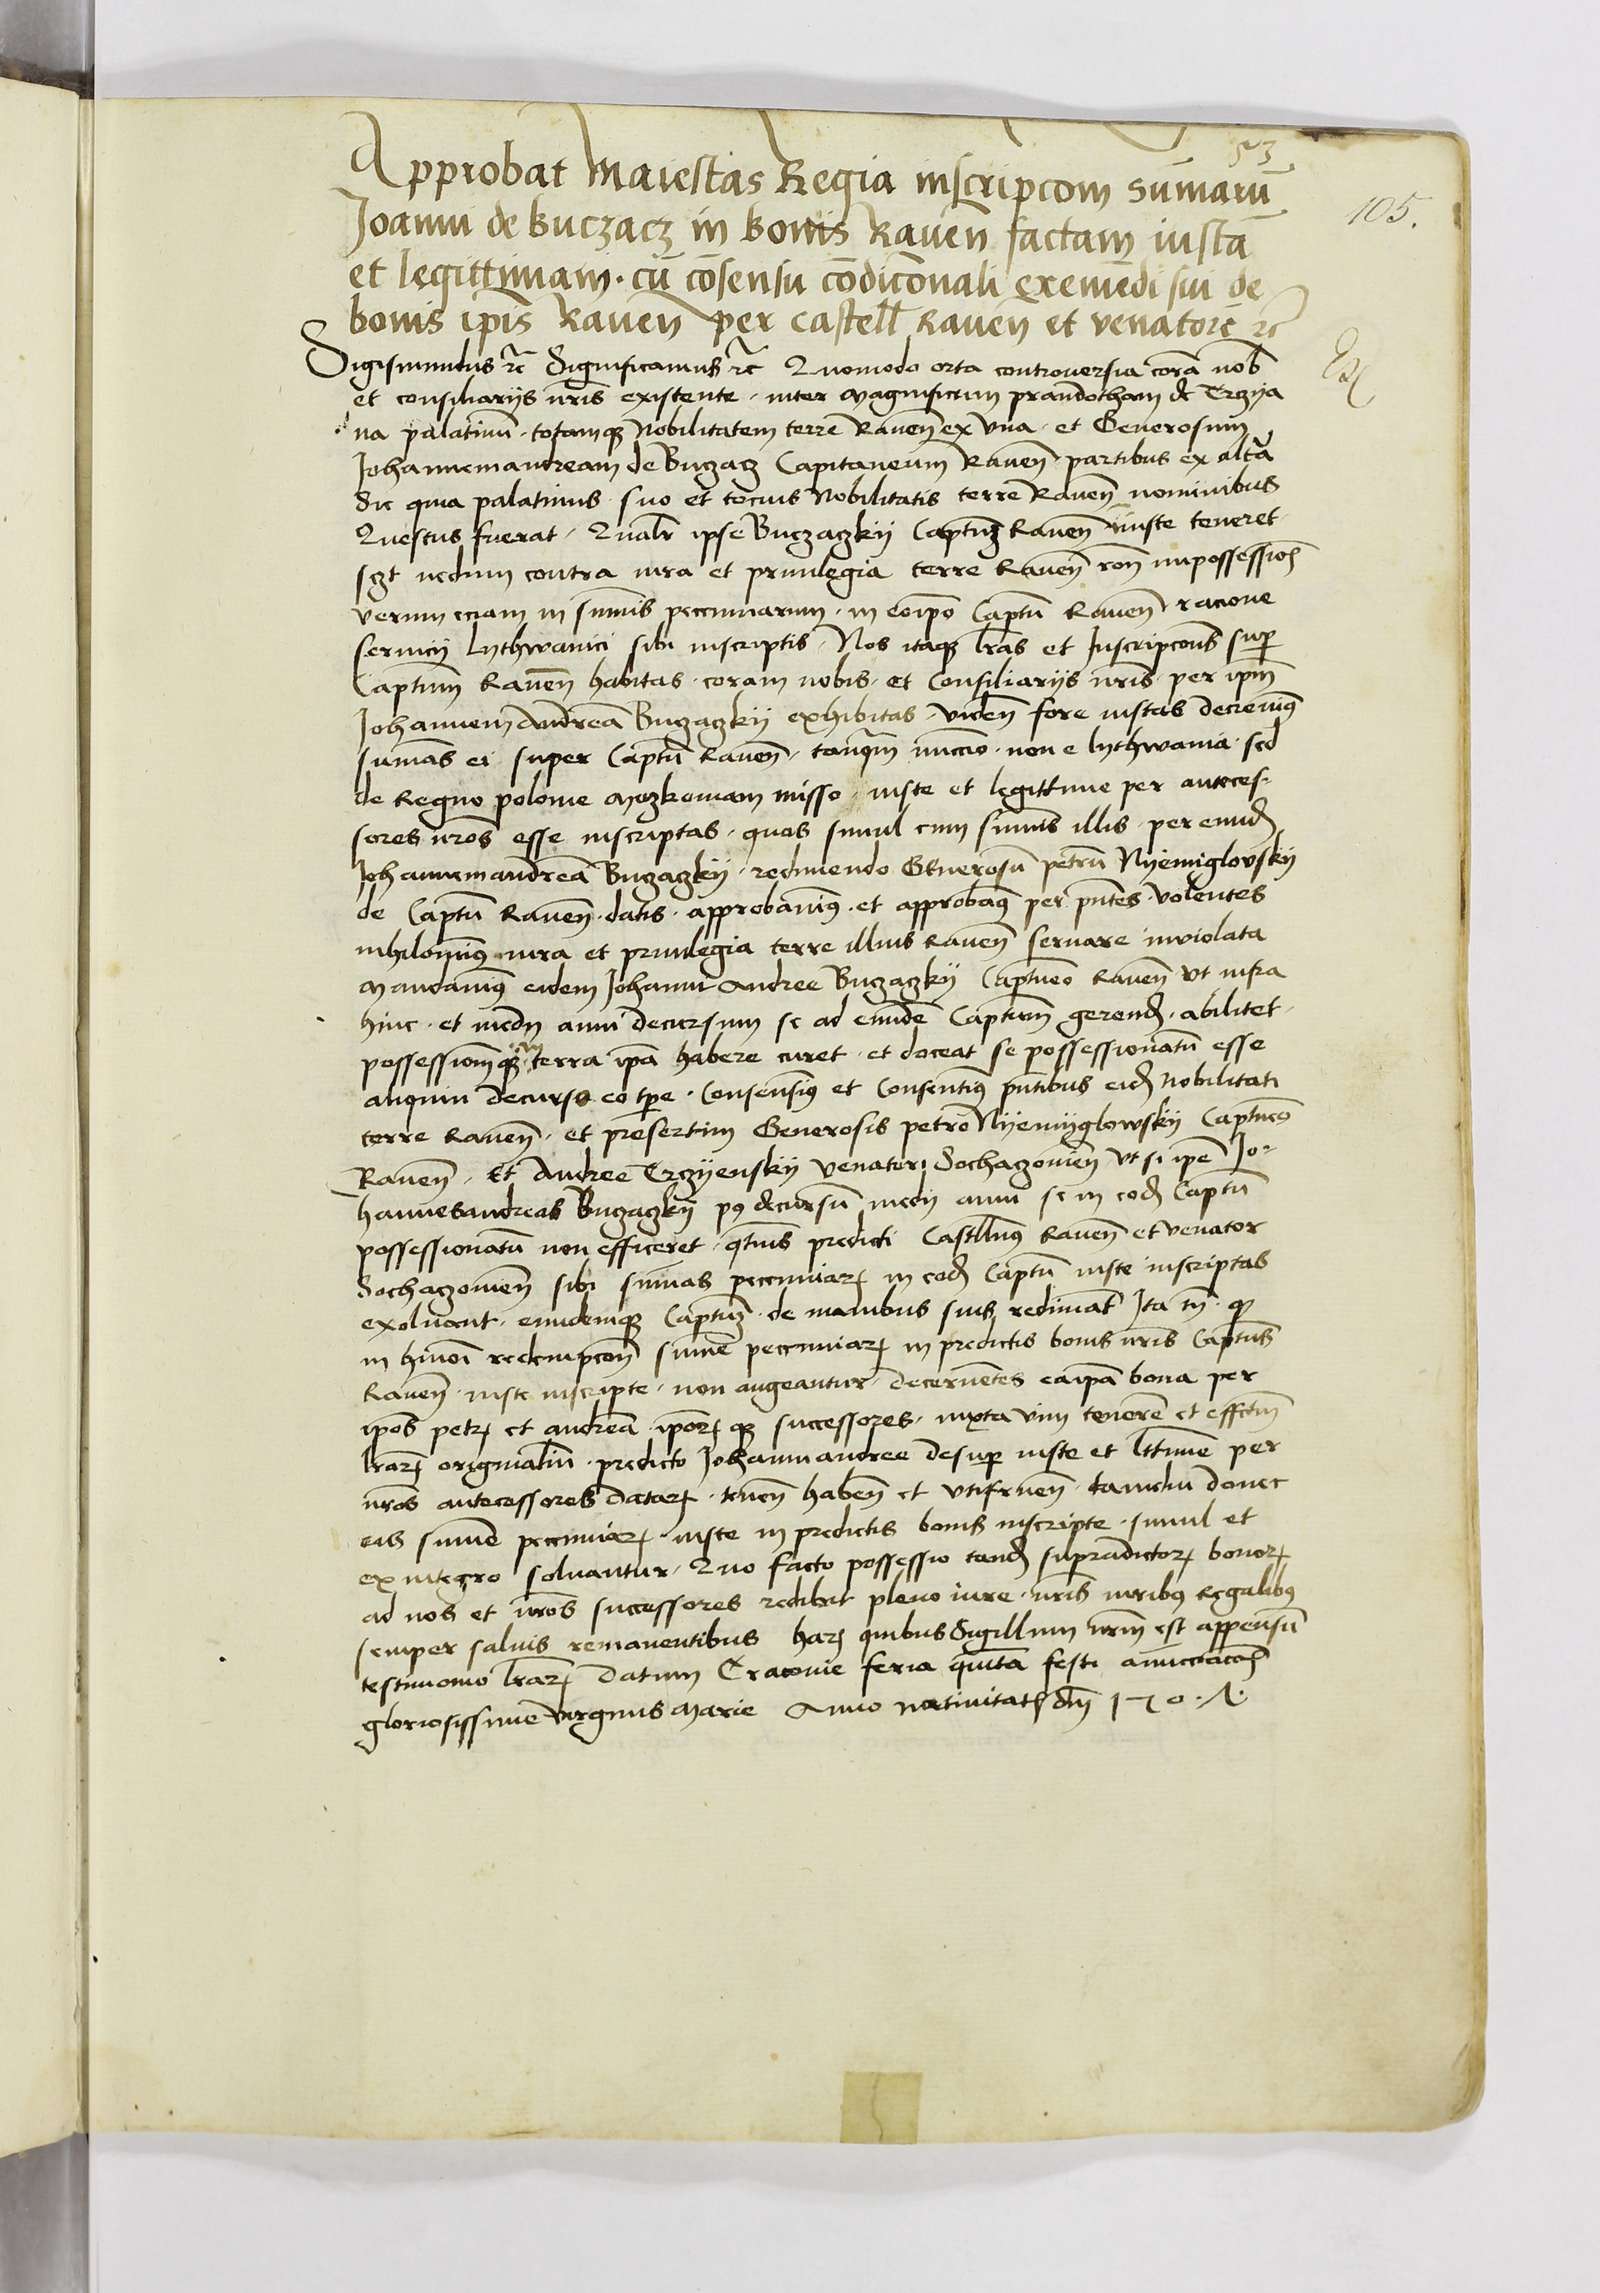 53
Approbat Maiestas Regia inscripcom sūmarū
105.
Joanni de buczacz in bonis Raven factam iustā
et legittimam. cū cōsensu cōdicōnali exemēdi sui de
bonis ipis Raven per castell Raven et venatorē rc
Sigismundus rc Significamus rc Quomodo orta controversia corā nob
et consiliarijs nris existente. inter Magnificum prandotham de Trzya
na palatinū. totamq nobilitatem terre Raven ex vna. et Generosum
Johannemandream de Buczacz Capitaneum Raven partibus ex altā
Sic quia palatinus suo et tocius nobilitatis terre Raven nominibus
Questus fuerat. Qualr ipse Buczaczkij Captuz Raven iniuste teneret
szt nedum contra iura et priuilegia terre Raven ron inpossession
verum eciam in summis peccuniarum. in eoipo Captū Raven racione
servicij lythwanici sibi inscriptis. Nos itaqz lras et Inscripcons sup
Captum Raven habitas. coram nobis. et Consiliarijs nris per ipm
Johannem Andreā Buczaczkij exhibitas. viden fore iustas decrevimus
sumas ei super Captū Raven. tanqm nuccio. non e lythwania. sed
de Regno polonie Mozkoviam misso. iuste et legittime per anteces-
sores nros esse inscriptas. quas simul cum sumis illis. per eund
Johannemandreā Buczaczkij. redimendo Generosū petrū Nyemiglovskij
de Captū Raven. datis. approbavim9. et approbam9 per pntes. volentes
nihilomin9 iura et priuilegia terre illius Raven servare inviolata
Mandavim9 eidem Johanni Andree Buczaczkij Captneo Raven vt infra
hinc. et medij anni decursum se ad eundē Captum gerend. abilitet.
possessionemqz in terra ipa habere curet. et doceat se possessionatū esse
alioquin decurso eo tpe. Consensim9 et Consentim9 pntibus eid nobilitati
terre Raven. et presertim Generosis petro Nyemyglowskij Captneo
Raven. Et Andree Trzyenskij venatori Sochazovien vt si ipe Jo-
hannesandreas Buczaczkij p9 decursū medij anni se in eod Captū
possessionatū non efficeret. qtenus predicti Castellan9 Raven et venator
Sochazovien sibi sumas peccuniar in eod Captū iuste inscriptas
exolvant. eundemqz Captuz. de manibus suis redimāt Ita tn. qd
in hmoi redempcon sume peccuniar in predictis bonis nris Captus
Raven. iuste inscripte. non augeantur. decernentes eaipā bona per
ipos petr et andreā ipor qz successores. iuxta vim tenorē et effctum
lrar originaliū. predicto Johanniandree desup iuste et lttime per
nros antecessores datar. tenen haben et vtifruen. tamdiu donec
eis sume peccuniar. iuste in predictis bonis inscripte. simul et
ex integro solvantur. Quo facto possessio tand supradictor bonor
ad nos et nros successores redibit pleno iure. nris iuribus Regalibus
semper salvis remanentibus har quibus Sigillum nrm est appensū
testimonio lrar Datum Cracovie feria quinta festi anuccciacois
gloriosissime virginis Marie Anno nativitatis dni